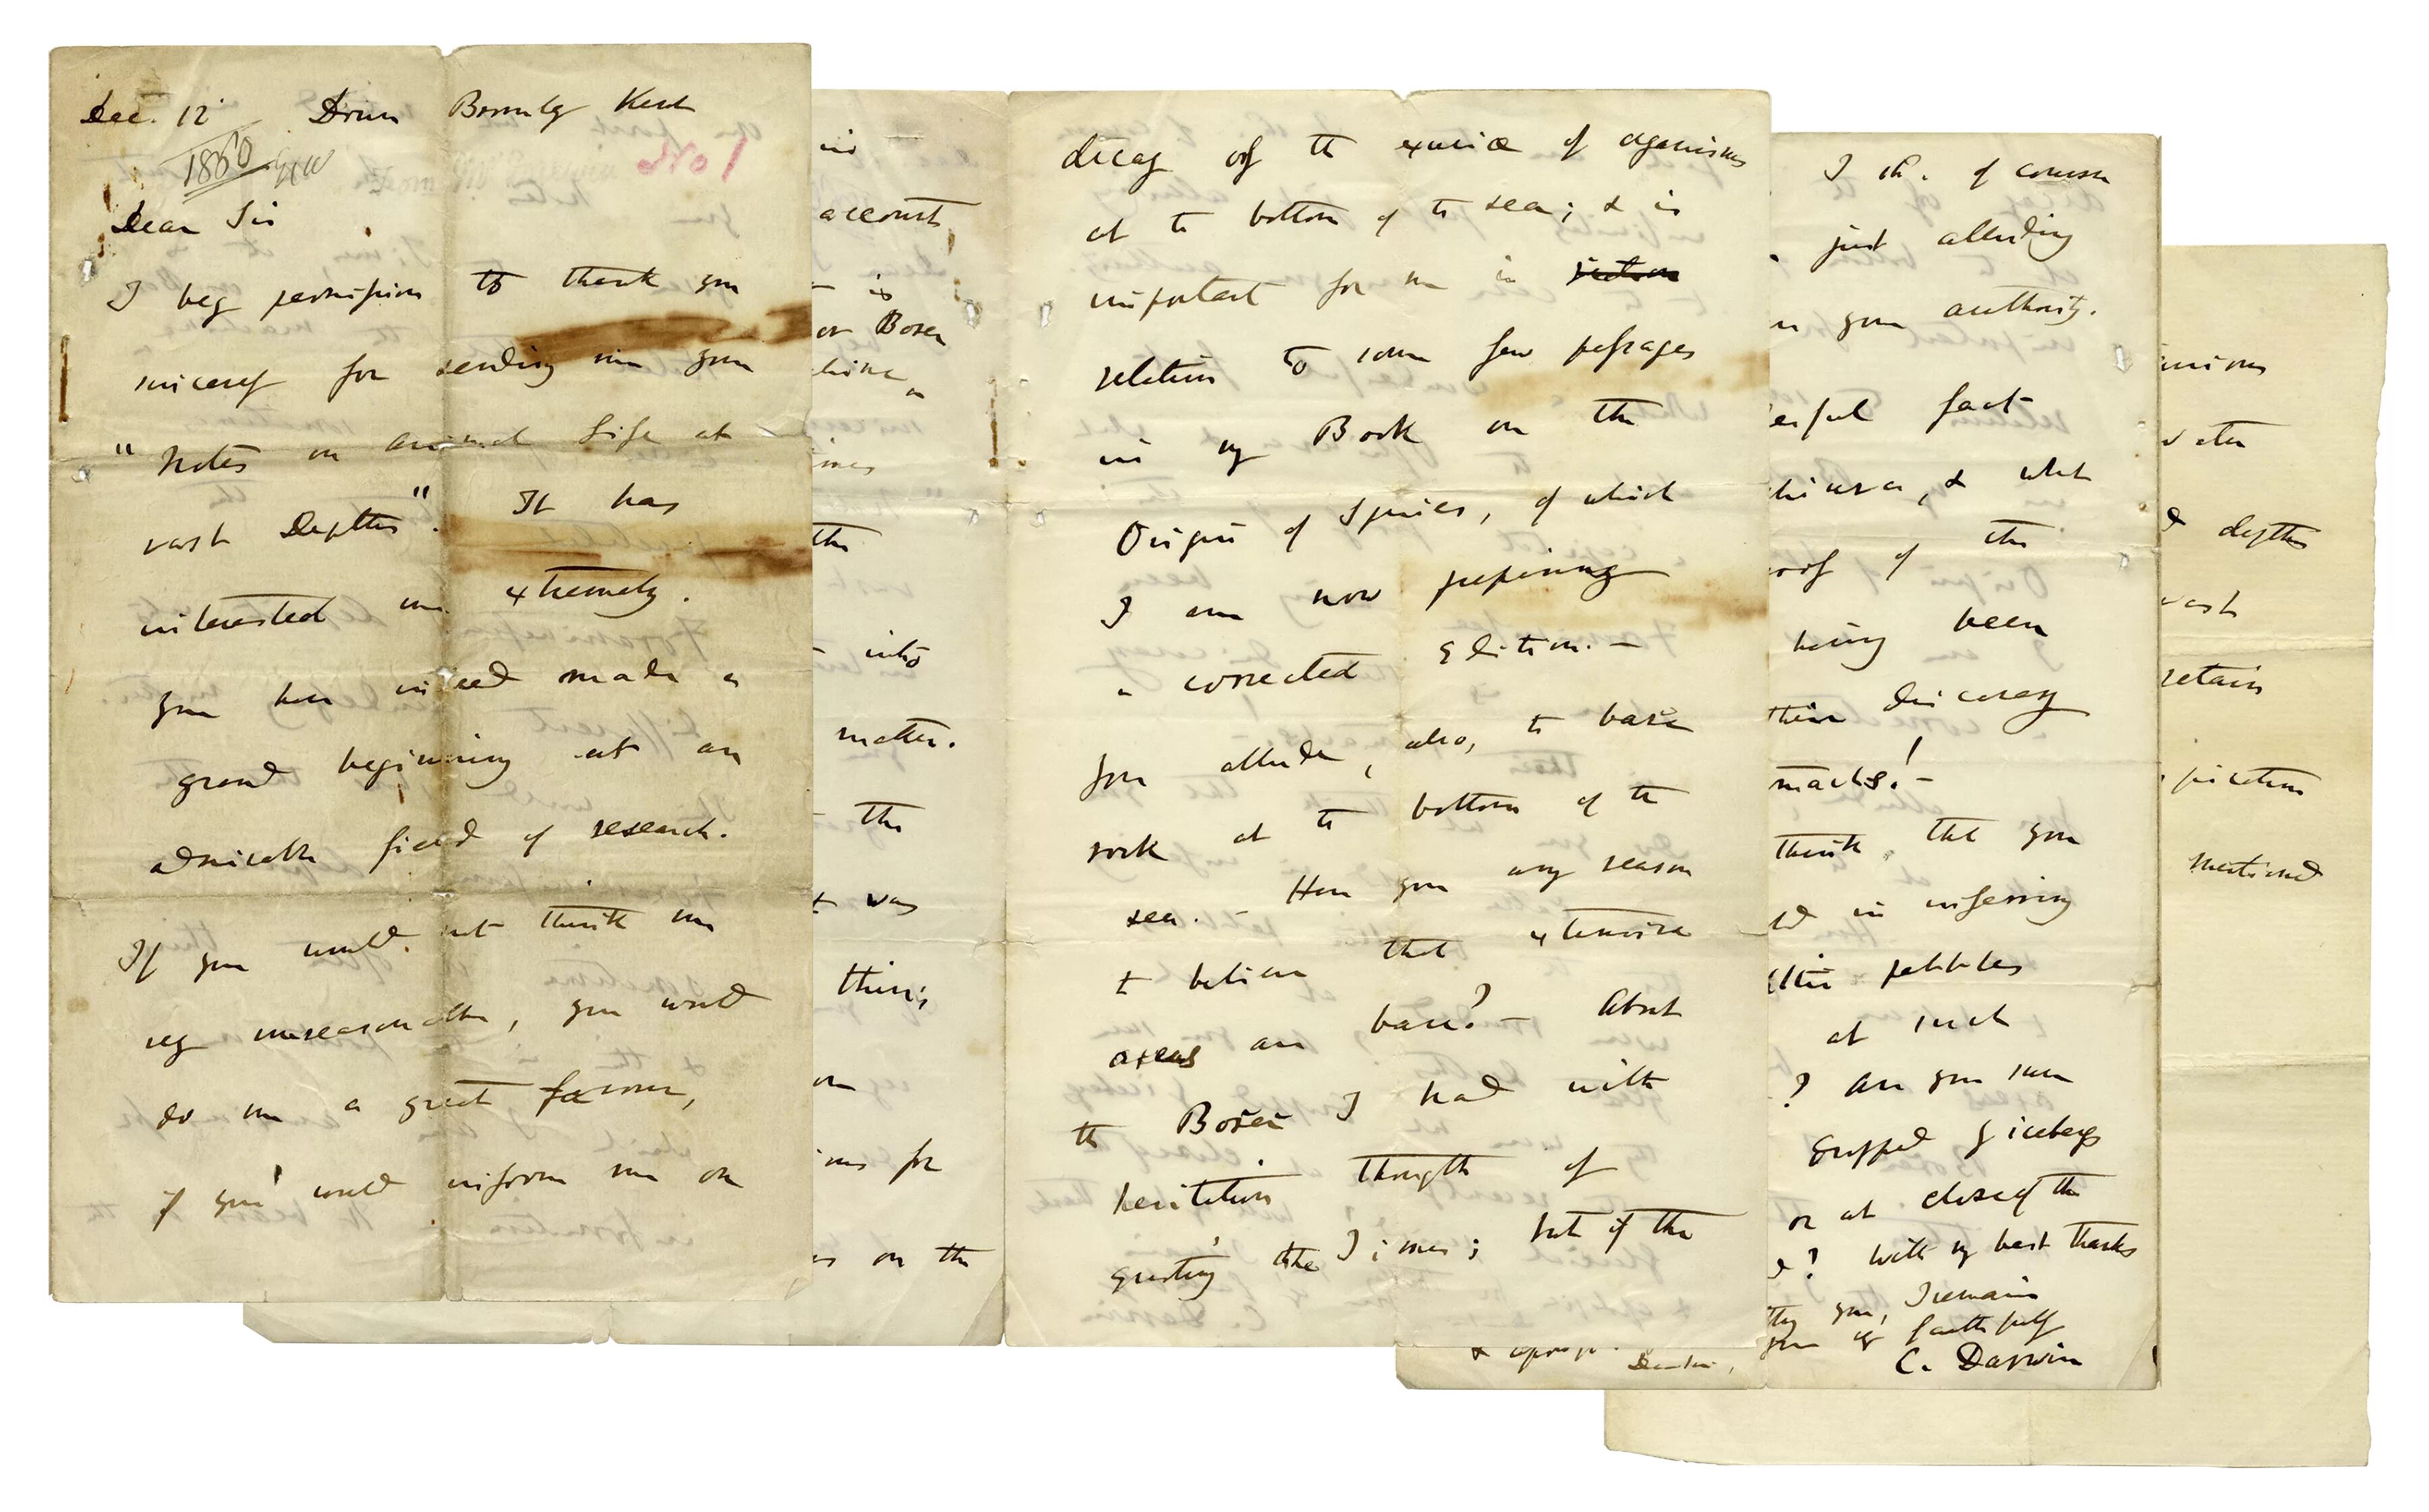 Dec. 12 Down Bromley Kent
1860 GCW
No 1
Dear Sir
I beg permission to thank you
sincerely for sending me your
"Notes on animal life at
vast Depths". It has
interested me extremely.
you have indeed made a
grand beginning at an
admirable field of research.
If you would not think me
very unreasonable, you would
do me a great favour,
if you would inform me on
account
is
or Boxer
the
into
matter.
the
was
thing
for
on the
decay of the exuviæ of organisms
at the bottom of the sea; & is
important for me in
relation to some few passages
in my Book on the
Origin of Species, of which
I am now preparing
a corrected Edition. —
you allude, also, to bare
rock at the bottom of the
sea. — Have you any reason
to believe that extensive
areas are bare? — About
the Boxer I had with
hesitation thought of
quoting the Times; but if the
I shd. of course
just alluding
your authority.
erful fact
& what
of the
having been
their discovery
machs! —
think that you
in inferring
pebbles
at such
? Are you sure
dropped by icebergs
or at close of the
? With my best thanks
you, I remain
your very faithfully
C. Darwin
depths
vast
retain
mentioned